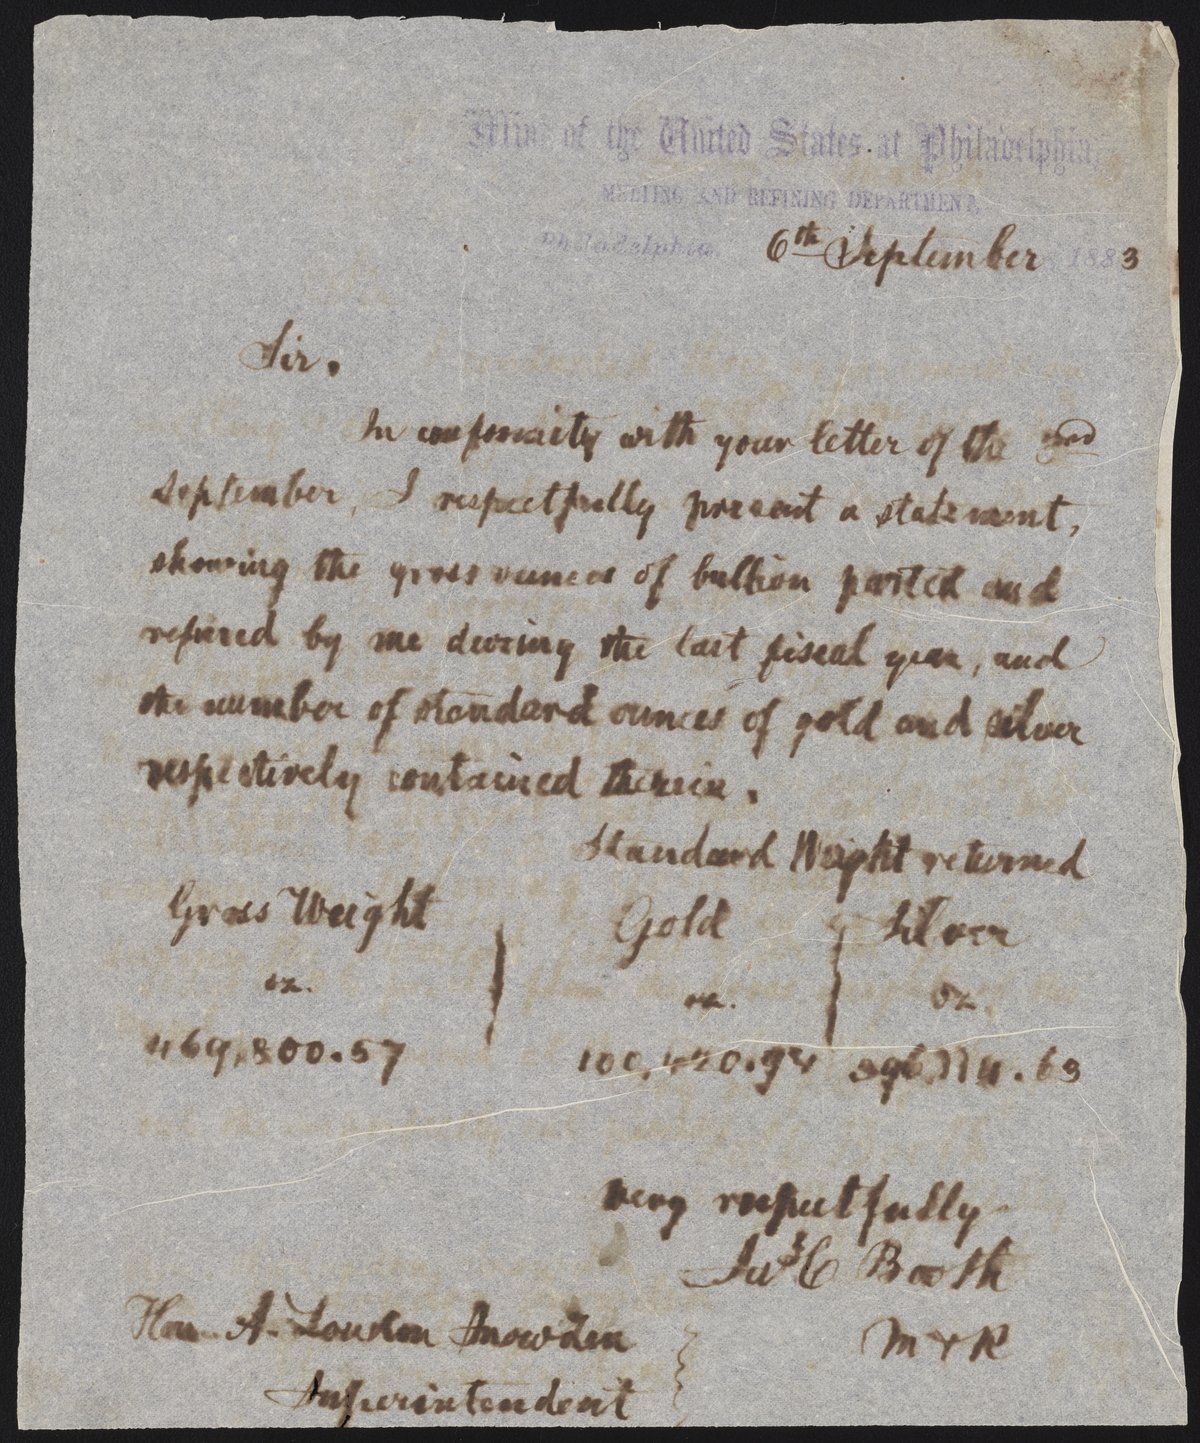 Mint of the United States at Philadelphia,
MELTING AND REFINING DEPARTMENT,
Philadelphia, 6th September 1883
Sir.
In conformity with your letter of the 3rd
September, I respectfully present a statement,
showing the gross ounces of bullion parted and
refined by me during the last fiscal year, and
the number of standard ounces of gold and silver
respectively contained therein.
Standard Weight returned
Gross Weight Gold Silver
oz. oz. oz.
469,800.57
very respectfully
Jas C Booth
Hon. A. Loudon Snowden M & R
Superintendent